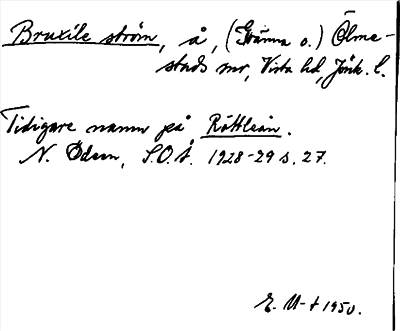 Bruxile ström, å, (Gränna o.) Ölme-
stads sn, Vista hd, Jönk. l.
Tidigare namn på Röttleån.
N. Ödeen, S.O.Å. 1928-29 s. 27.
E. M-t 1950.